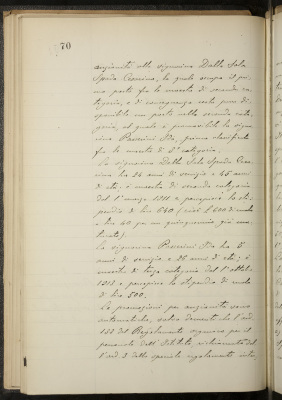 70
anzianità alla signorina Dalla Sala
Spada Cesarina, la quale occupa il pri-
mo posto fra le maestre di seconda ca-
tegoria, e di conseguenza resta pure di-
sponibile un posto nella seconda cate-
goria, al quale è promovibile la signo-
rina Passrini Ida, prima classificata
fra le maestre di 3ª categoria.
La signorina Dalla Sala Spada Cesa-
rina ha 24 anni di servizio e 45 anni
di età; è maestra di seconda categoria
dal 1° marzo 1911 e percepisce lo sti-
pendio di lire 660 (cioè £ 600 di ruolo
e lire 60 pel un quinquennio già ma-
turato).
La signorina Ida ha 5
anni di servizio e 26 anni di età; è
maestra di terza categoria dal 1° ottobre
1912 e percepisce lo stipendio di ruolo
di lire 500.
Le promozioni per anzianità sono
automatiche, salvo demeriti che l'art.
122 del Regolamento organico per il
personale dell'Istituto, richiamato dal-
l'art 3 dello speciale regolamento inter,